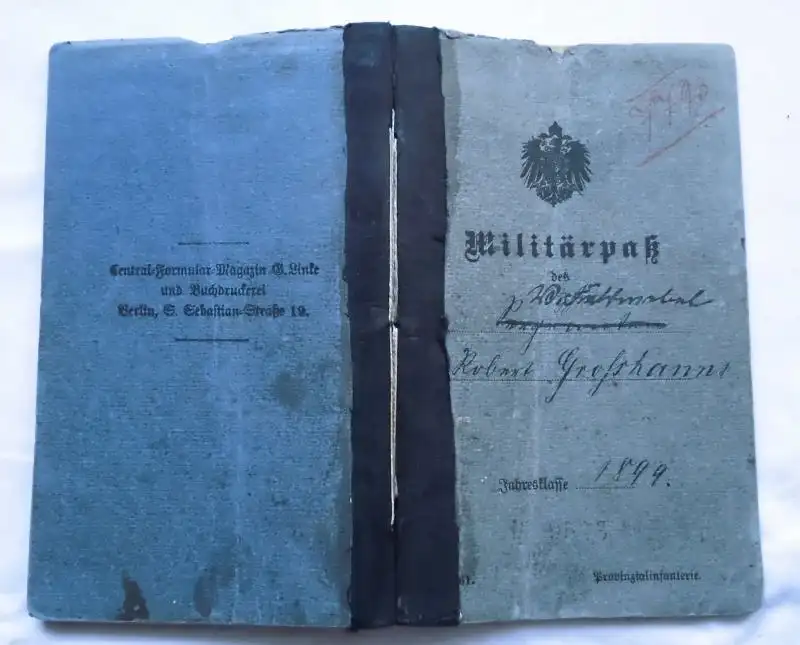 Central-Formular-Magazin G. Linke
und Buchdruckerei
Berlin, S. Sebastian-Straße 19.
Militärpaß
des
Vizefeldwebel
Robert Großhanns
Jahresklasse 1899.
Provinzialinfanterie.